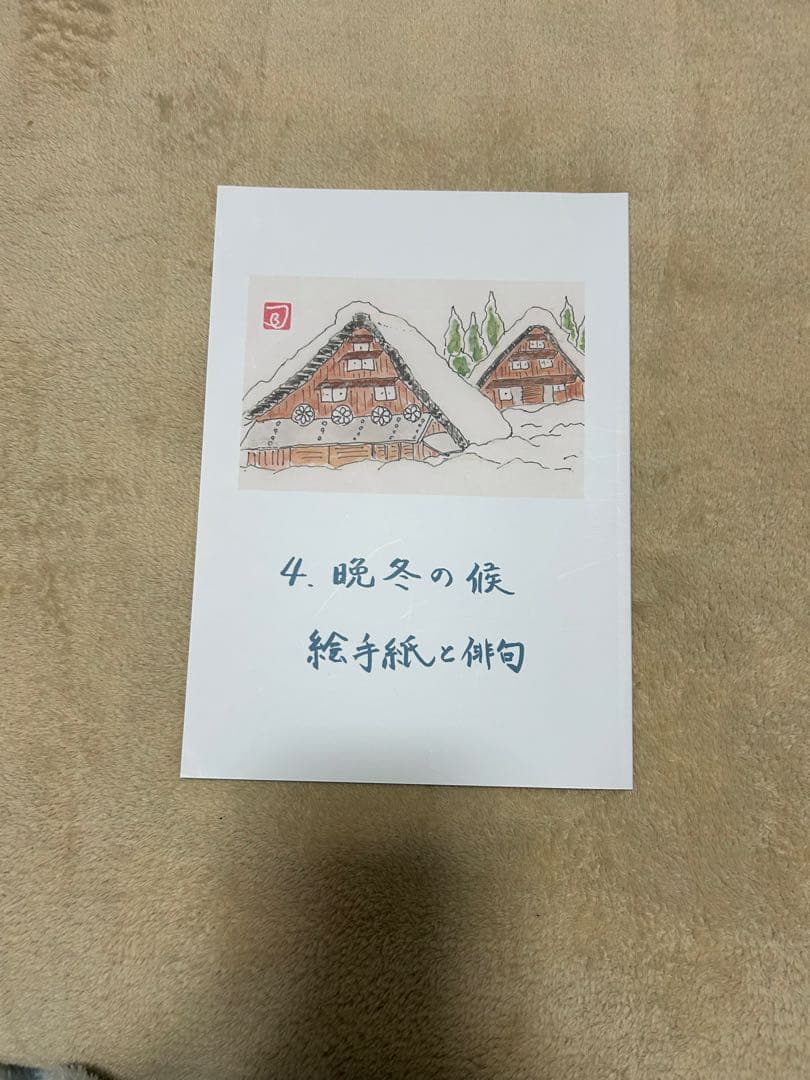 4. 晩冬の候
絵手紙と俳句